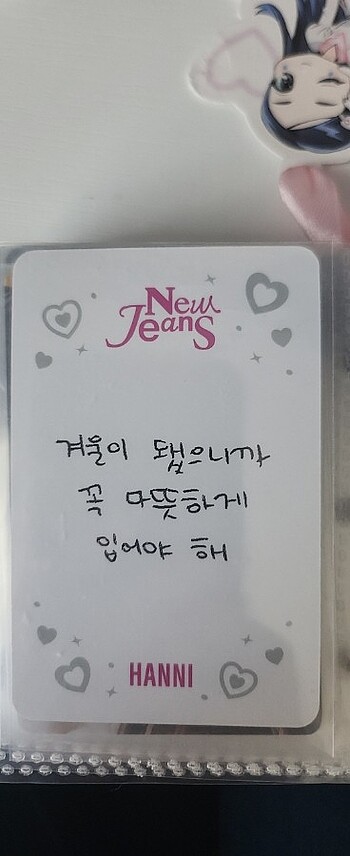 New
Jeans
겨울이 됐으니까
꼭 따뜻하게
입어야 해
HANNI